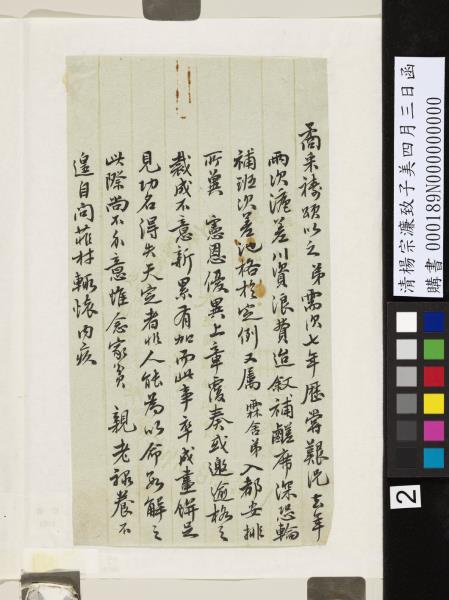 矞来禱頌以之弟需次七年歷嘗艱况去年
兩次滬差川資浪費迨敘補醝席深恐輪
補班次差池格於定例又屬霖舍弟入都安排
所冀 憲恩優異上章覆奏或邀逾格之
裁成不意新累有加而此事卒成畫餅足
見功名得失天定者非人能為以命自解之
此際尚不介意惟念家貧 親老祿養不
遑自問菲材輒懷內疚
清楊宗濂致子美四月三日函
購書 000189N000000000
2